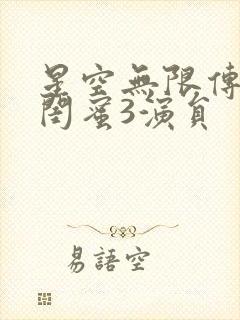 星空無限傳
閨蜜3演員
易語空